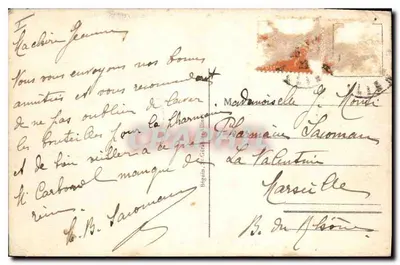 I
Ma chère Jeanne
Nous vous envoyons nos bonnes
amitiés et vous recommandant
de ne pas oublier de laver
les bouteilles pour la pharmacie
et de bien veiller à ce que
Mr Carbonel manque de
rien.
M. B. Sacoman
Mademoiselle J.
Pharmacie Sacoman
La Valentine
Marseille
B. du Rhône